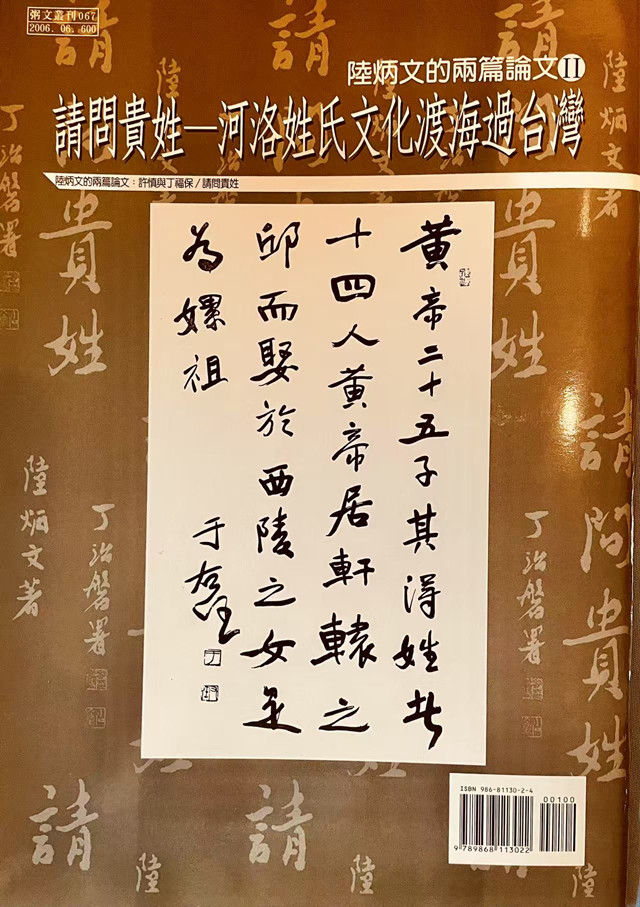 粥文叢刊067
2006.06.600
陸炳文的兩篇論文II
請問貴姓—河洛姓氏文化渡海過台灣
陸炳文的兩篇論文：許慎與丁福保/請問貴姓
黃帝二十五子其得姓者
十四人黃帝居軒轅之
邱而娶於西陵之女是
為嫘祖
于右任
請問貴姓
陸炳文著
丁治磐署
ISBN 986-81130-2-4
00100
9 789868 113022